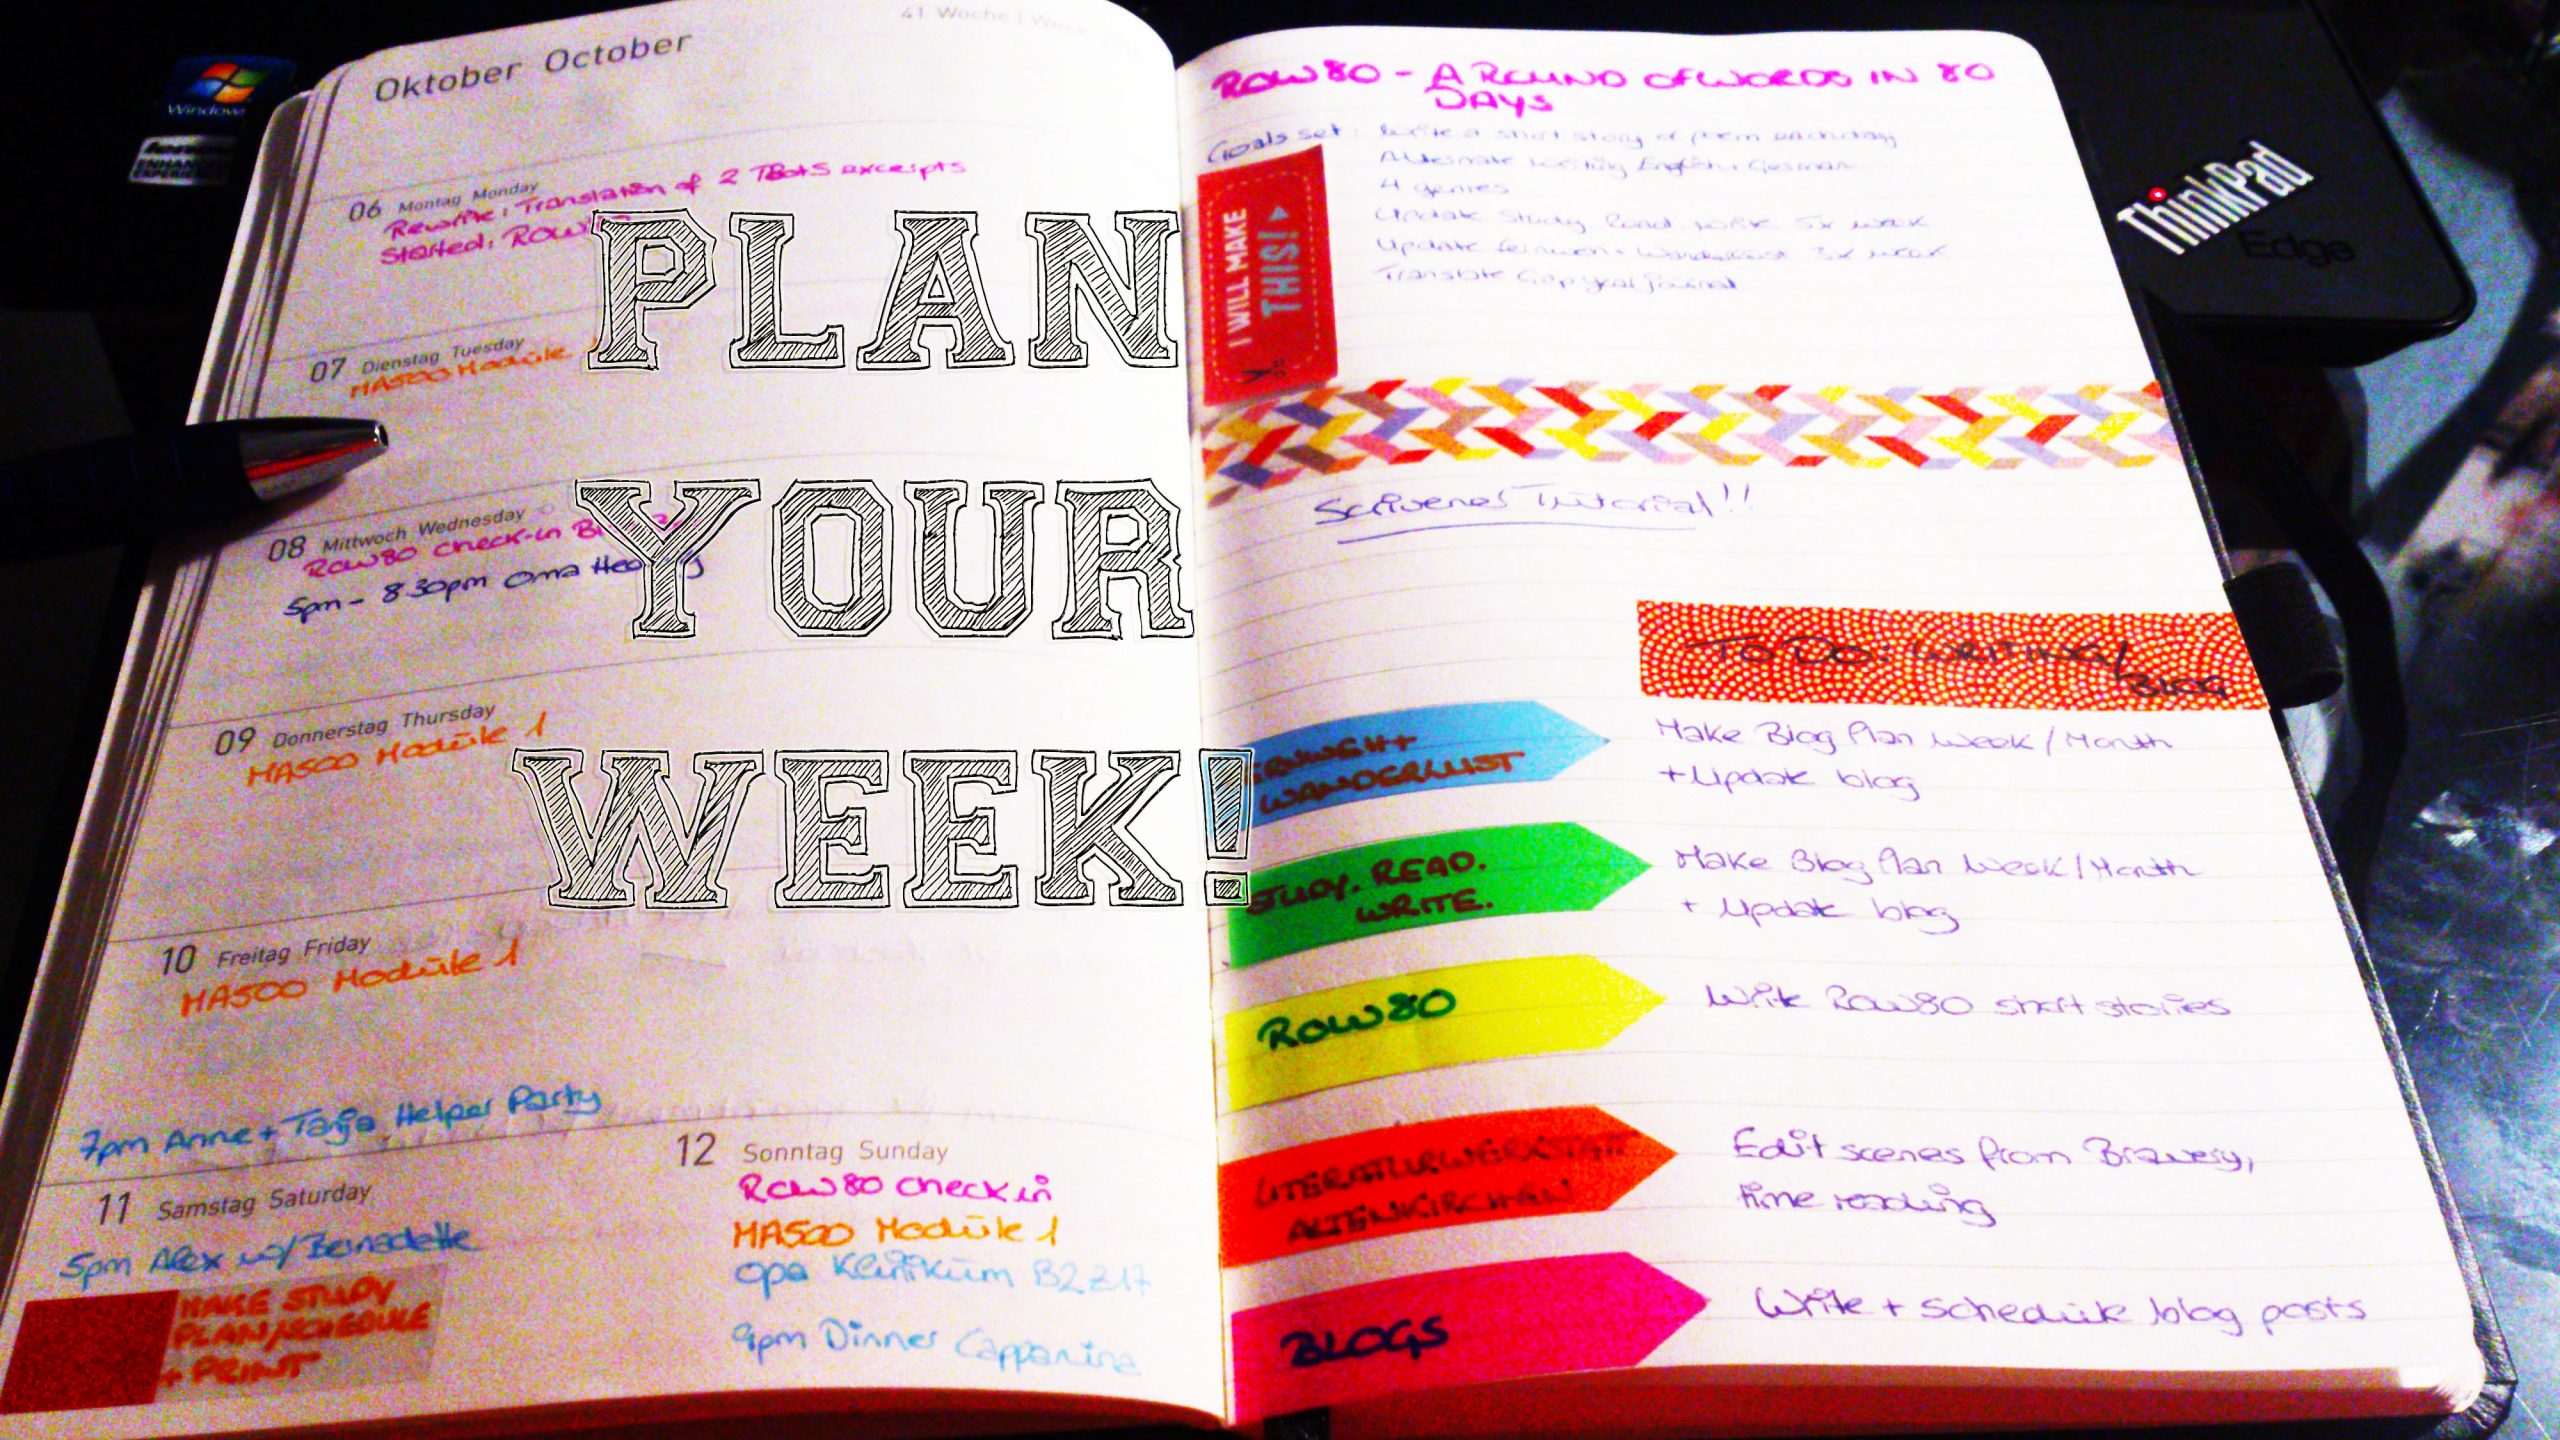 Windows
ENHANCED
EXPERIENCE
41 Woche | Week
Oktober October
06 Montag Monday
Rewrite: Translation of 2 TBotS excerpts
Started: ROW
07 Dienstag Tuesday
MA500 Module
08 Mittwoch Wednesday
ROW80 check-in
5pm - 8.30pm Oma
09 Donnerstag Thursday
MA500 Module 1
10 Freitag Friday
MA500 Module 1
7pm Anne + Tanja Helper Party
11 Samstag Saturday
5pm Alex w/ Bernadette
MAKE STUDY
PLAN/SCHEDULE
+ PRINT
12 Sonntag Sunday
ROW80 check in
MA500 Module 1
Opa Klinikum B2 Z17
9pm Dinner Cappanina
PLAN
YOUR
WEEK!
ROW80 - A ROUND OF WORDS IN 80
DAYS
Goals set: Write a short story or poem each day
Alternate writing English + German
4 genres
Update Study. Read. Write 5x week
Update Fernweh + Wanderlust 3x week
Translate Gap year journal
I WILL MAKE
THIS!
Scrivener Tutorial!!
TO DO: WRITING/
BLOG
ERNWEH +
WANDERLUST
Make Blog Plan Week / Month
+ Update blog
STUDY. READ.
WRITE.
Make Blog Plan Week / Month
+ Update blog
ROW80
Write ROW80 short stories
LITERATURWERKSTATT
ALTENKIRCHEN
Edit scenes from Bravery,
time reading
BLOGS
Write + schedule blog posts
ThinkPad
Edge